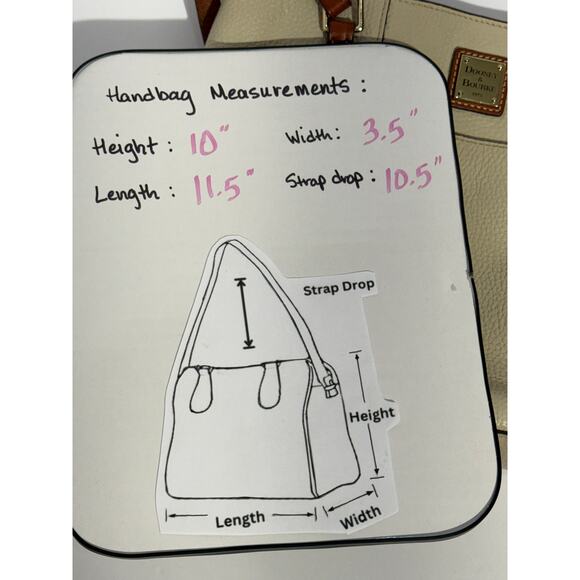 Handbag Measurements :
Height : 10" Width : 3.5"
Length : 11.5" Strap drop : 10.5"
Strap Drop
Height
Width
Length
DOONEY
&
BOURKE
1975